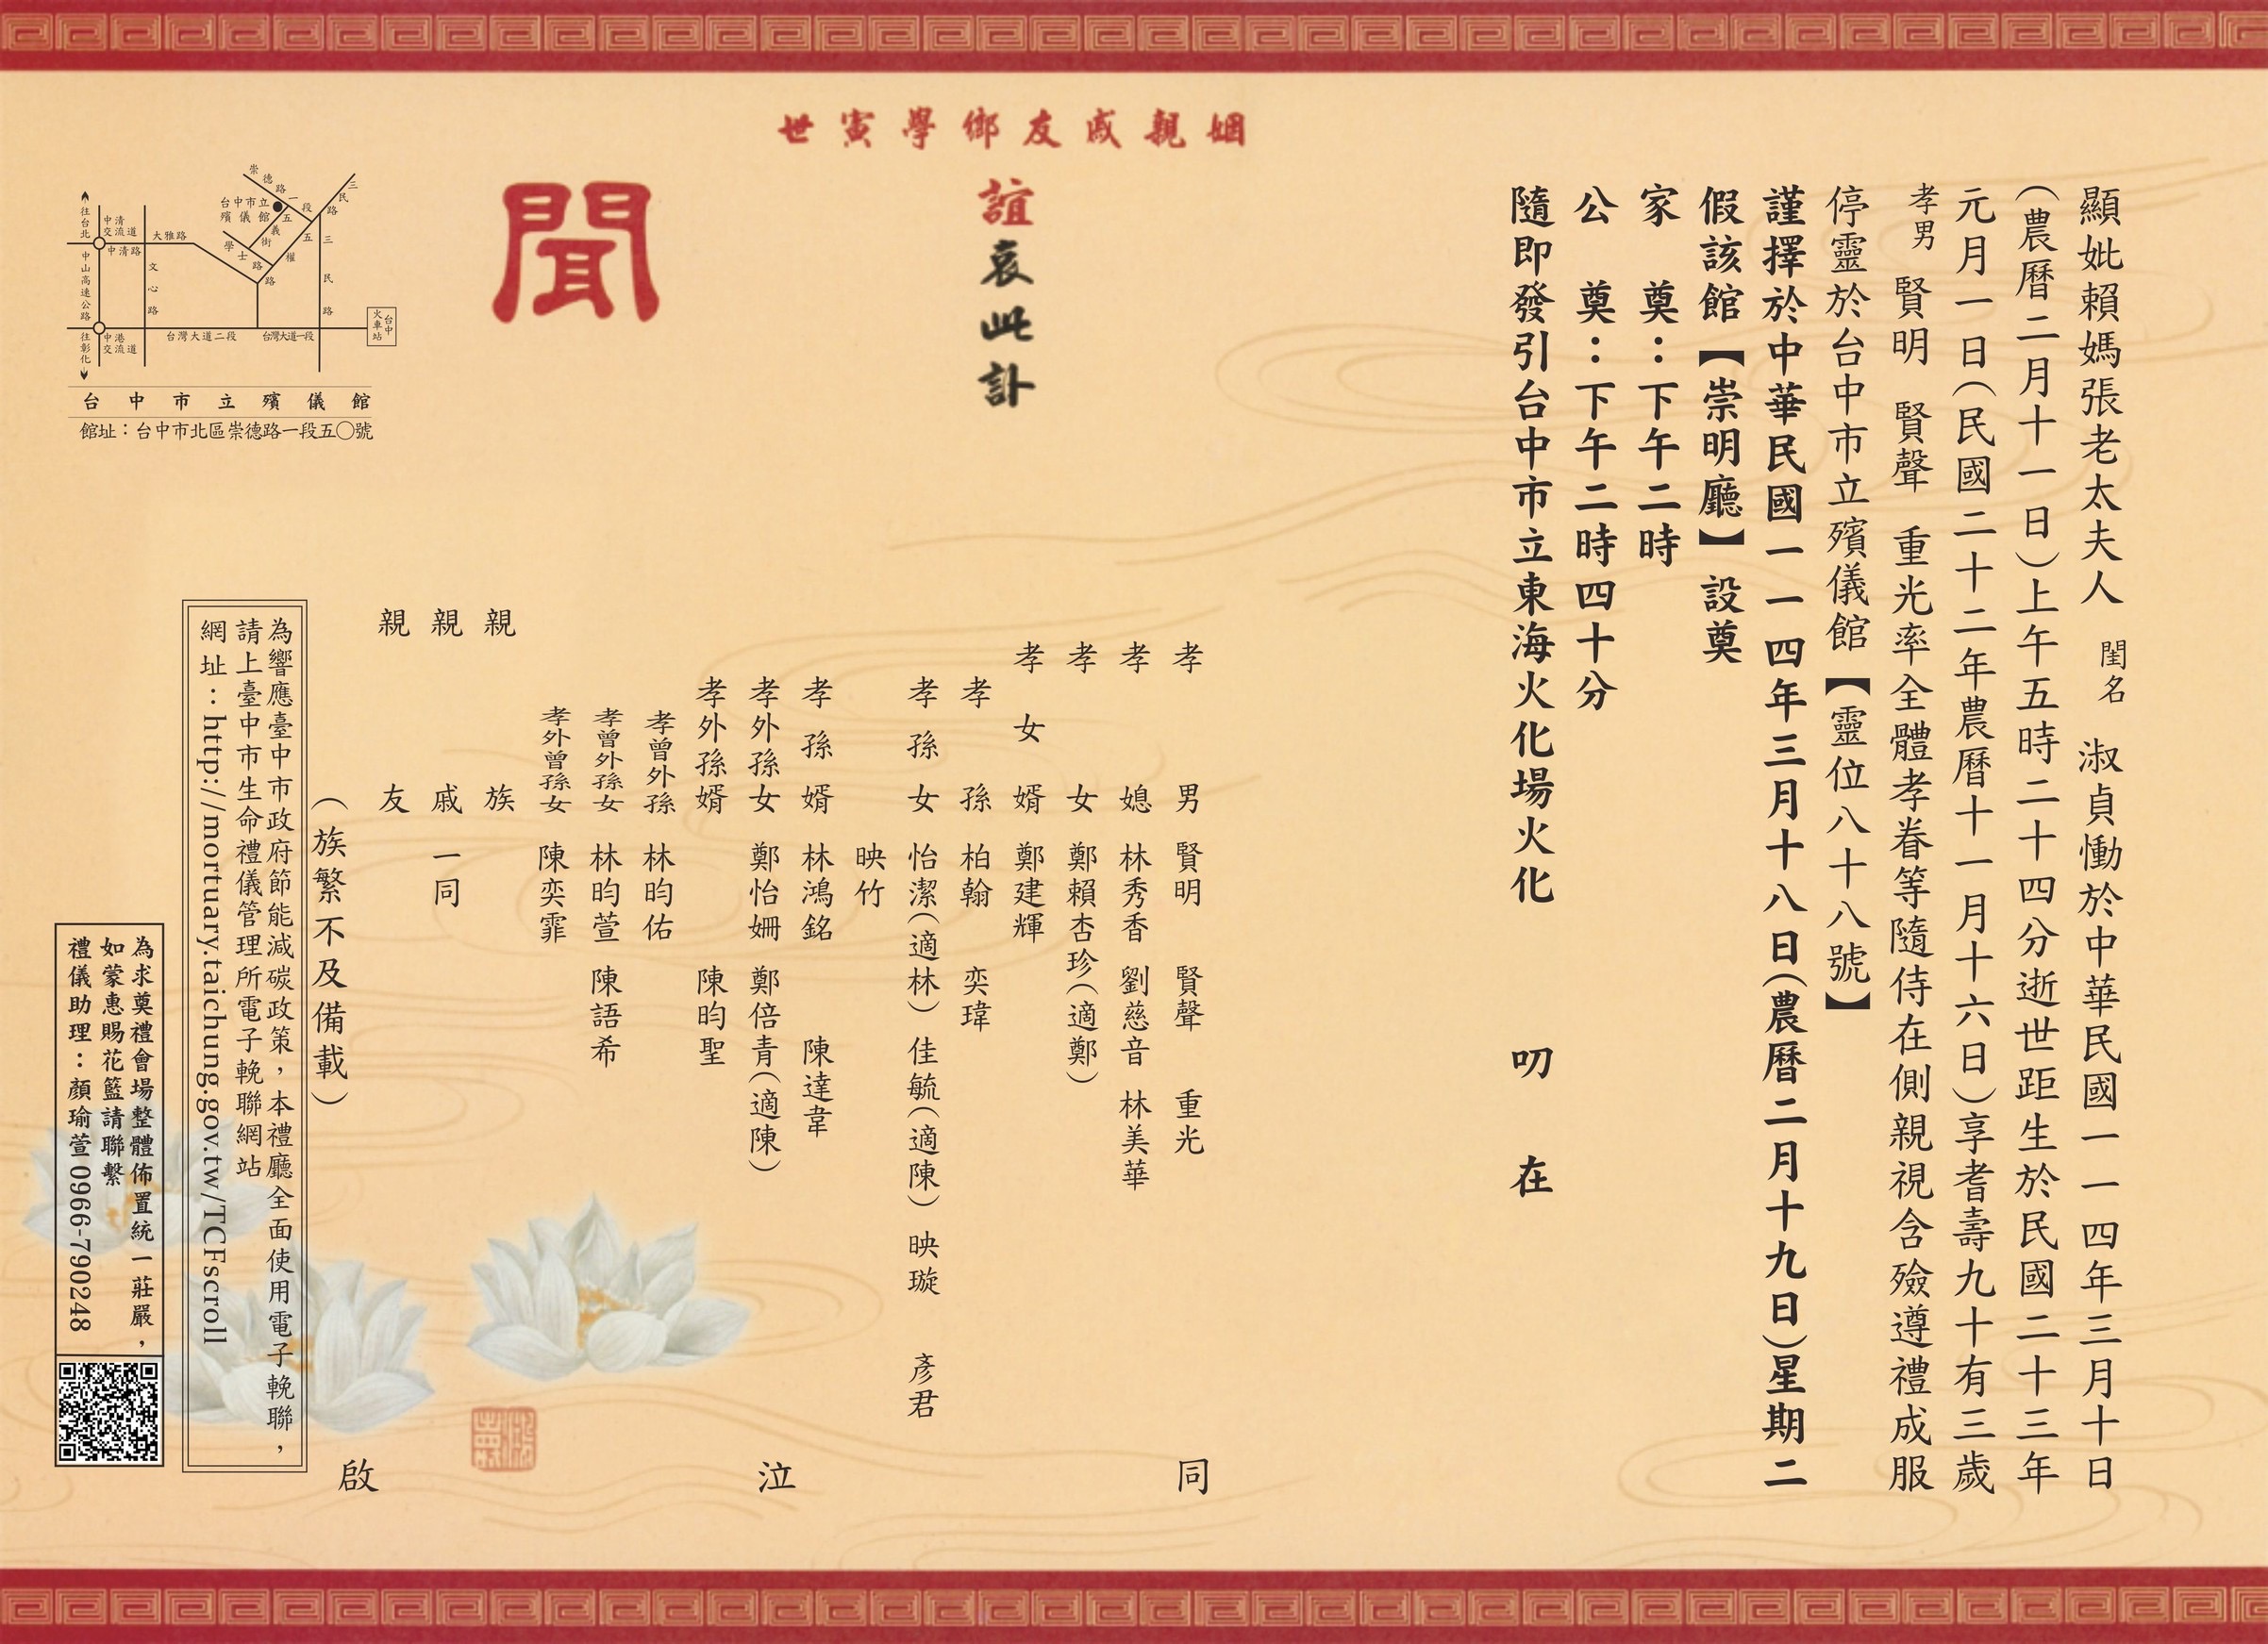 顯妣賴媽張老太夫人 閨名 淑貞慟於中華民國一一四年三月十日
(農曆二月十一日)上午五時二十四分逝世距生於民國二十三年
元月一日(民國二十二年農曆十一月十六日)享耆壽九十有三歲
孝男 賢明 賢聲 重光率全體孝眷等隨侍在側親視含殮遵禮成服
停靈於台中市立殯儀館【靈位八十八號】
謹擇於中華民國一一四年三月十八日(農曆二月十九日)星期二
假該館【崇明廳】設奠
家 奠：下午二時
公 奠：下午二時四十分
隨即發引台中市立東海火化場火化 叨 在
姻親戚友鄉學寅世
誼哀此訃
聞
孝男 賢明 賢聲 重光
孝媳 林秀香 劉慈音 林美華
孝女 鄭賴杏珍(適鄭)
孝女婿 鄭建輝
孝孫 柏翰 奕瑋
孝孫女 怡潔(適林) 佳毓(適陳) 映璇 彥君
映竹
孝孫婿 林鴻銘 陳達韋
孝外孫女 鄭怡姍 鄭倍青(適陳)
孝外孫婿 陳昀聖
孝曾外孫 林昀佑
孝曾外孫女 林昀萱 陳語希
孝外曾孫女 陳奕霏
親族
親戚 一同
親友
(族繁不及備載)
同 泣 啟
為響應臺中市政府節能減碳政策，本禮廳全面使用電子輓聯，
請上臺中市生命禮儀管理所電子輓聯網站
網址：http://mortuary.taichung.gov.tw/TCFscroll
為求奠禮會場整體佈置統一莊嚴，
如蒙惠賜花籃請聯繫
禮儀助理：顏瑜萱 0966-790248
崇德路一段
三民路
台中市立
殯儀館
五義街
五權路
學士路
三民路
往台北
中清
交流道
大雅路
中清路
中山高速公路
文心路
台中
火車站
往彰化
中港
交流道
台灣大道二段
台灣大道一段
台中市立殯儀館
館址：台中市北區崇德路一段五〇號